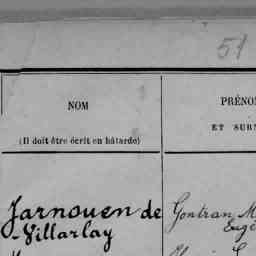 51
NOM
PRÉNO
ET SURN
(Il doit être écrit en bâtarde)
Jarnouen de
-Villarlay
Gontran M
Eugè